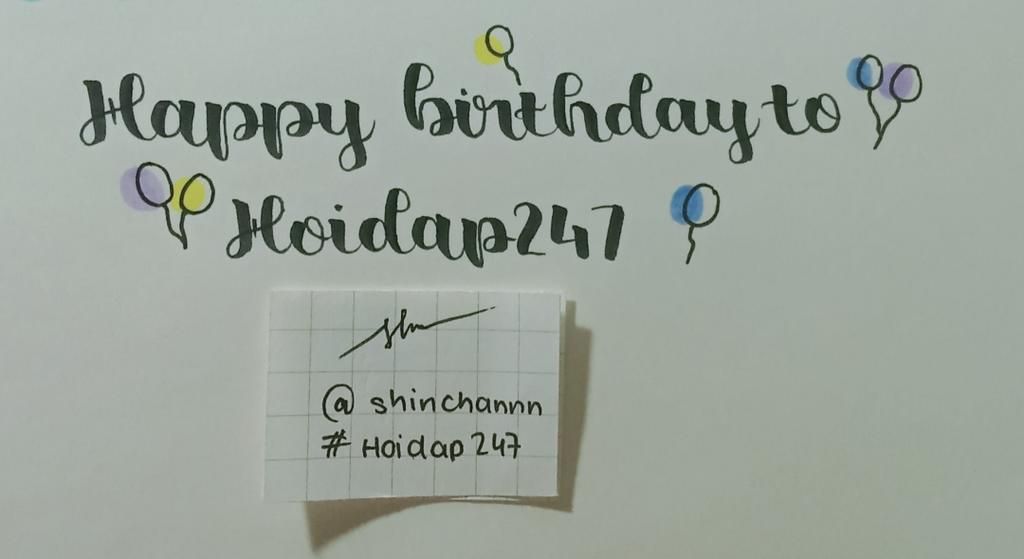 Happy birthday to
Hoidap247
@ shinchannn
# Hoidap 247